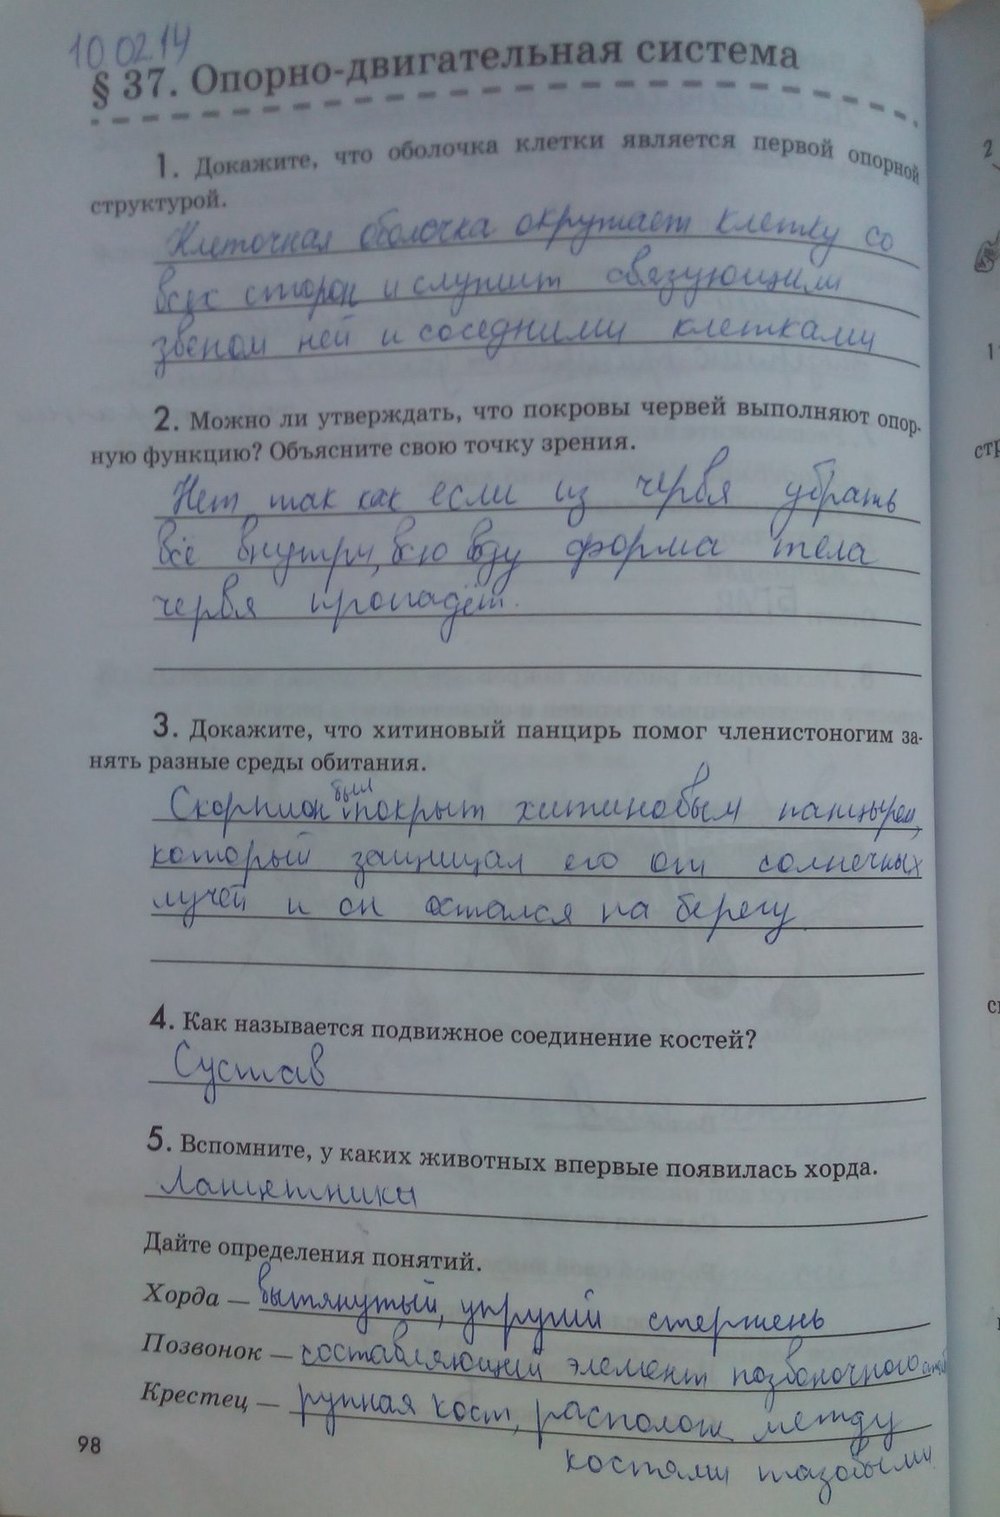 10.02.14
§ 37. Опорно-двигательная система
1. Докажите, что оболочка клетки является первой опорной
структурой.
Клеточная оболочка окружает клетку со
всех сторон и служит связующим
звеном ней и соседними клетками
2. Можно ли утверждать, что покровы червей выполняют опор-
ную функцию? Объясните свою точку зрения.
Нет так как если из червя убрать
всё внутри, всю воду форма тела
червя пропадёт.
3. Докажите, что хитиновый панцирь помог членистоногим за-
нять разные среды обитания.
Скорпион был покрыт хитиновым панцырем,
который защищал его от солнечных
лучей и он остался на берегу
4. Как называется подвижное соединение костей?
Сустав
5. Вспомните, у каких животных впервые появилась хорда.
Ланцетники
Дайте определения понятий.
Хорда — вытянутый, упругий стержень
Позвонок — составляющий элемент позвоночного
Крестец — кост, располож между
костями тазовыми
98
2
1
стр